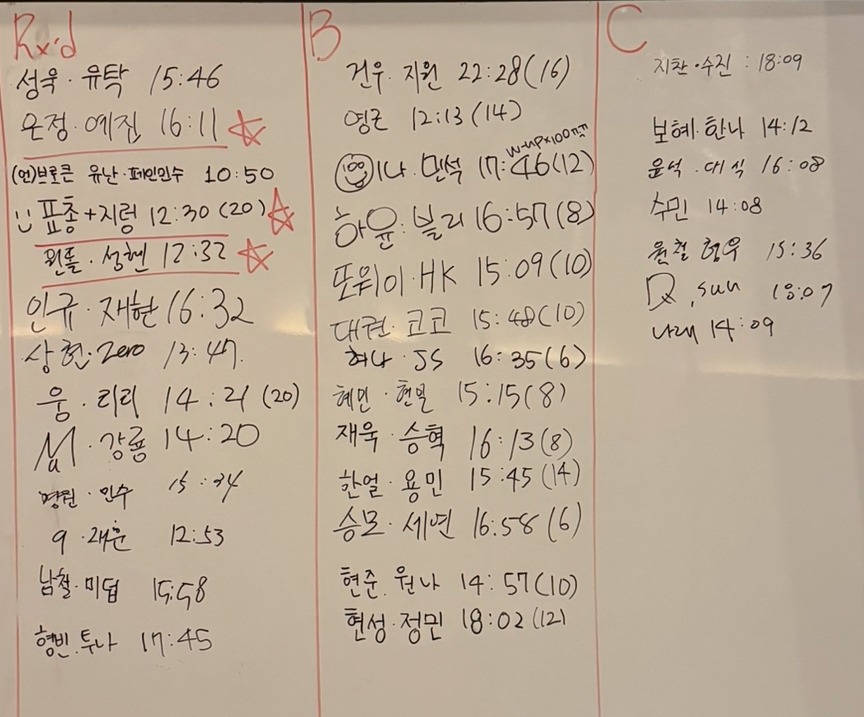 Rx'd
성욱·유탁 15:46
은정·예진 16:11
(언)브로큰 유난·페인인수 10:50
표총+지렁 12:30 (20)
윈톨·성헌 12:32
인규·재현 16:32
상현·Zero 13:47.
웅·리리 14:21 (20)
강룡 14:20
인수 15:34
9·재훈 12:53
남철·미덥 15:58
형빈·투나 17:45
B
건우·지원 22:28(16)
영근 12:13(14)
W-up×100
100 1나·민석 17:46(12)
하윤·블리 16:57(8)
또위이·HK 15:09(10)
대권·코코 15:48(10)
허나·JS 16:35(6)
혜민·현일 15:15(8)
재욱·승혁 16:13(8)
한얼·용민 15:45(14)
승모·세연 16:58(6)
현준·원나 14:57(10)
현성·정민 18:02(12)
C
지찬·수진 : 18:09
보혜·한나 14:12
윤덕·대식 16:08
수민 14:08
윤철 형우 15:36
sun 18:07
나래 14:09